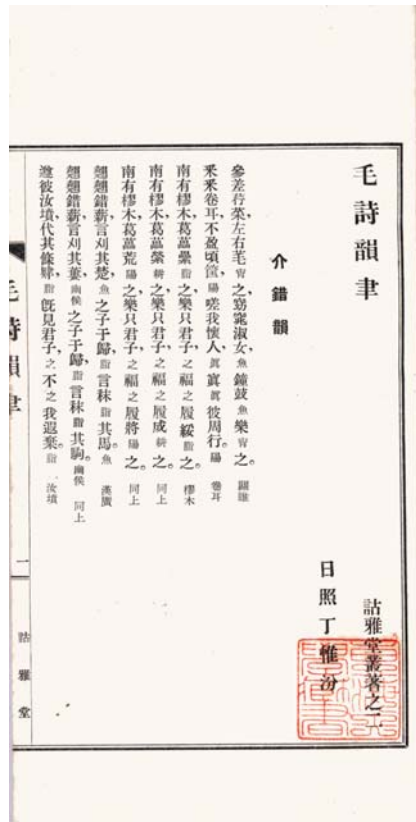 毛詩韻聿
詁雅堂叢著之二
日照丁惟汾
介錯韻
參差荇菜，左右芼宵之，窈窕淑女，魚鐘鼓魚樂宵之。關雎
釆釆卷耳，不盈頃筐，陽嗟我懷人，眞寘眞彼周行。陽 卷耳
南有樛木，葛藟纍脂之，樂只君子，之福之履綏脂之。樛木
南有樛木，葛藟縈耕之，樂只君子，之福之履成耕之。同上
南有樛木，葛藟荒陽之，樂只君子，之福之履將陽之。同上
翹翹錯薪，言刈其楚，魚之子于歸，脂言秣脂其馬。魚 漢廣
翹翹錯薪，言刈其蔞，幽侯之子于歸，脂言秣脂其駒。幽侯 同上
遵彼汝墳，伐其條肄，脂旣見君子，之不之我遐棄。脂 汝墳
毛詩韻聿
一
詁雅堂